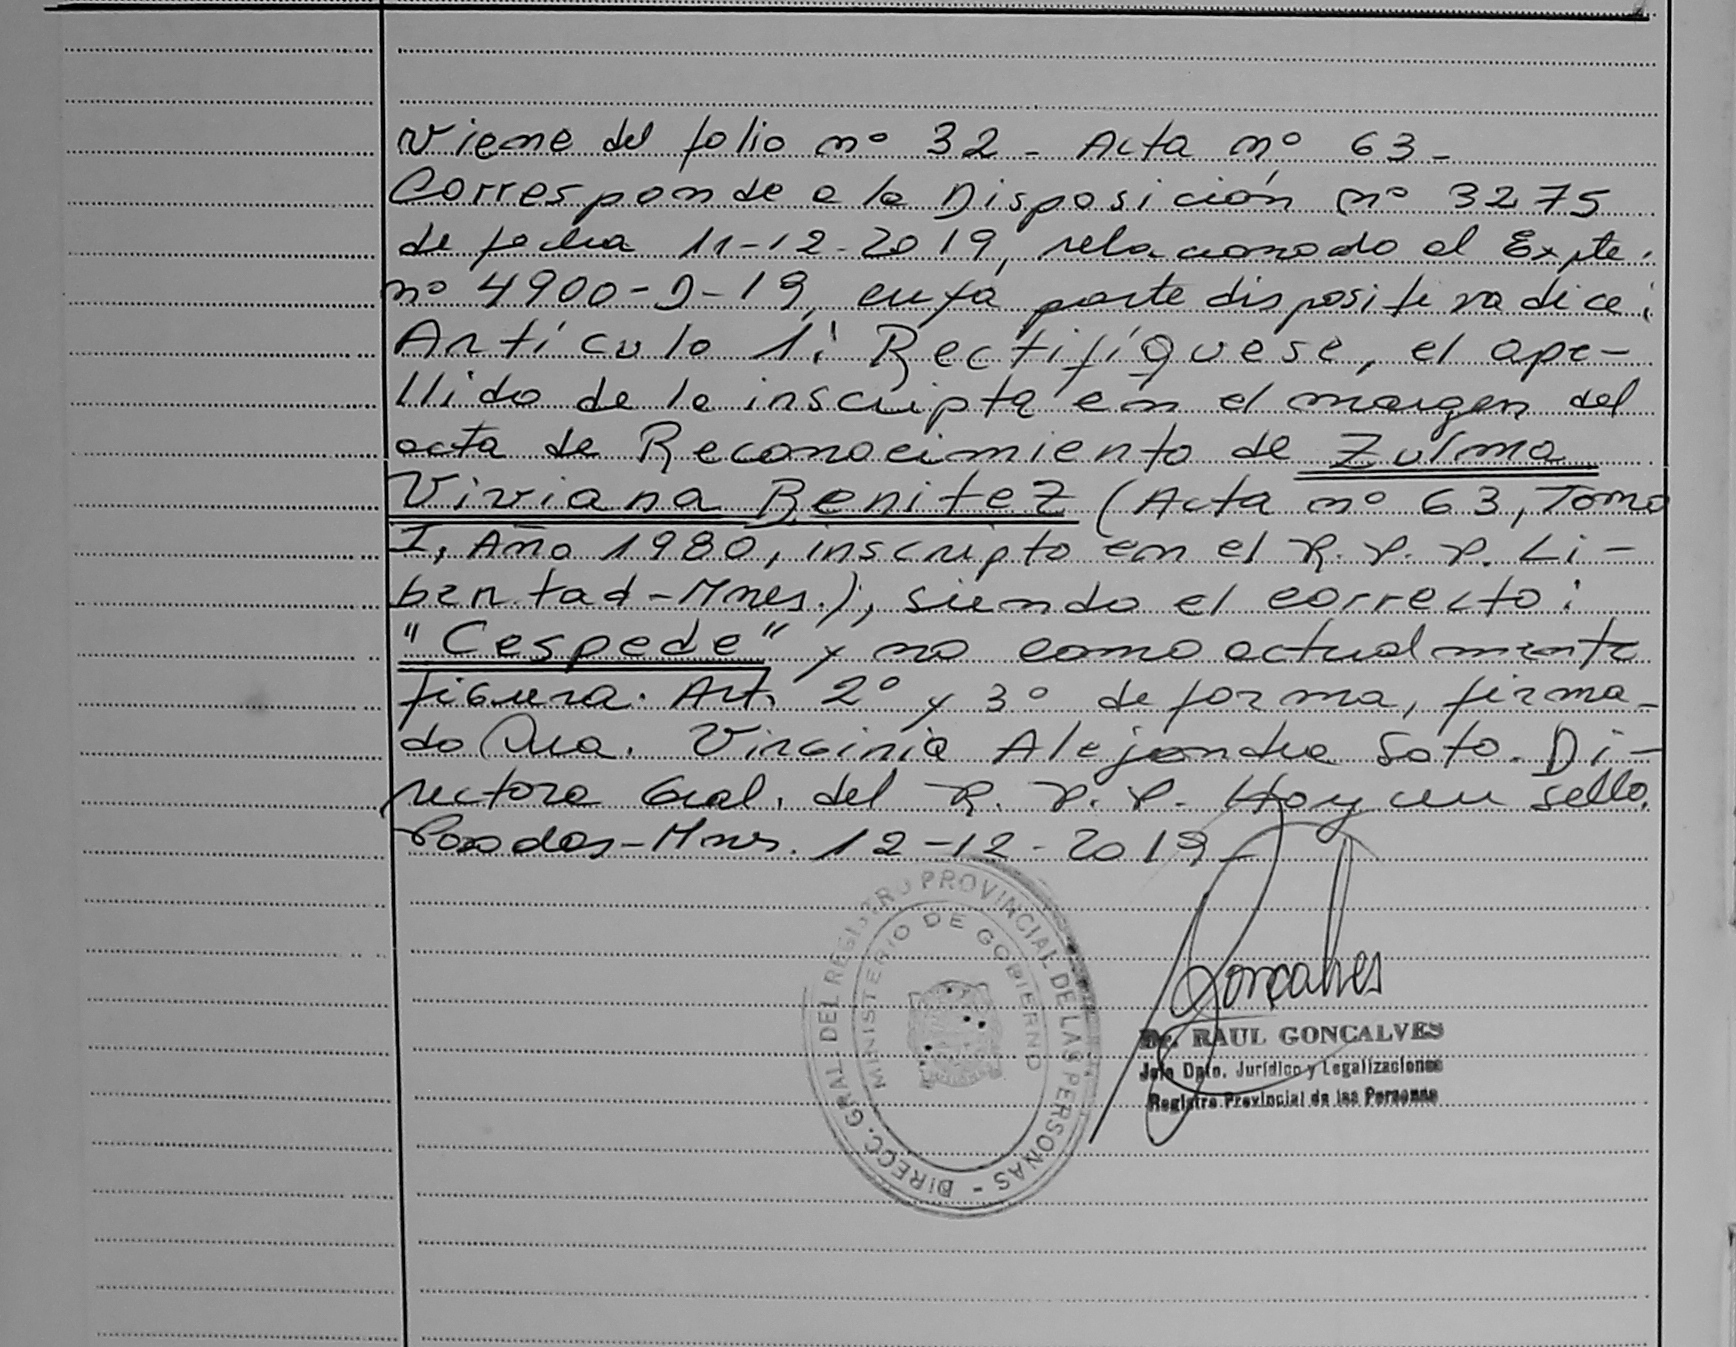 Viene del folio nº 32 - Acta nº 63 -
Corresponde a la Disposición nº 3275
de fecha 11-12-2019, relacionado al Expte.
nº 4900-D-19, cuya parte dispositiva dice:
Artículo 1: Rectifíquese, el ape-
llido de la inscripta en el margen del
acta de Reconocimiento de Zulma
Viviana Benitez (Acta nº 63, Tomo
I, Año 1980, inscripto en el R.P.P. Li-
bertad-Mnes.), siendo el correcto:
"Cespede" y no como actualmente
figura. Art. 2º y 3º de forma, firma-
do Dra. Virginia Alejandra Soto. Di-
rectora Gral. del R.P.P. Hay un sello.
Posadas-Mnes. 12-12-2019-
DIRECC. GRAL. DEL REGISTRO PROVINCIAL DE LAS PERSONAS -
MINISTERIO DE GOBIERNO
Goncalves
Dr. RAUL GONCALVES
Jefe Dpto. Jurídico y Legalizaciones
Registro Provincial de las Personas